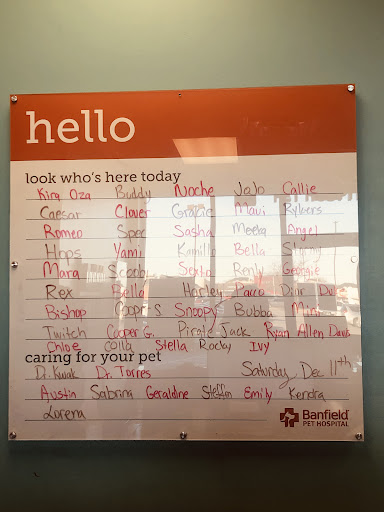 hello
look who's here today
Kira Oza Buddy Noche JoJo Callie
Caesar Clover Gracie Maui Rykers
Romeo Spec Sasha Meeka Angel
Hops Yami Kamillo Bella
Mara Scooby Sexto Renly Georgie
Rex Bella Harley Paco Dior
Bishop Coop S Snoopy Bubba Mini
Twitch Cooper G. Pirate Jack Ryan Allen Davis
Chloe Colla Stella Rocky Ivy
caring for your pet
Dr. Kwak Dr. Torres Saturday, Dec 11th
Austin Sabrina Geraldine Steffin Emily Kendra
Lorena
Banfield
PET HOSPITAL